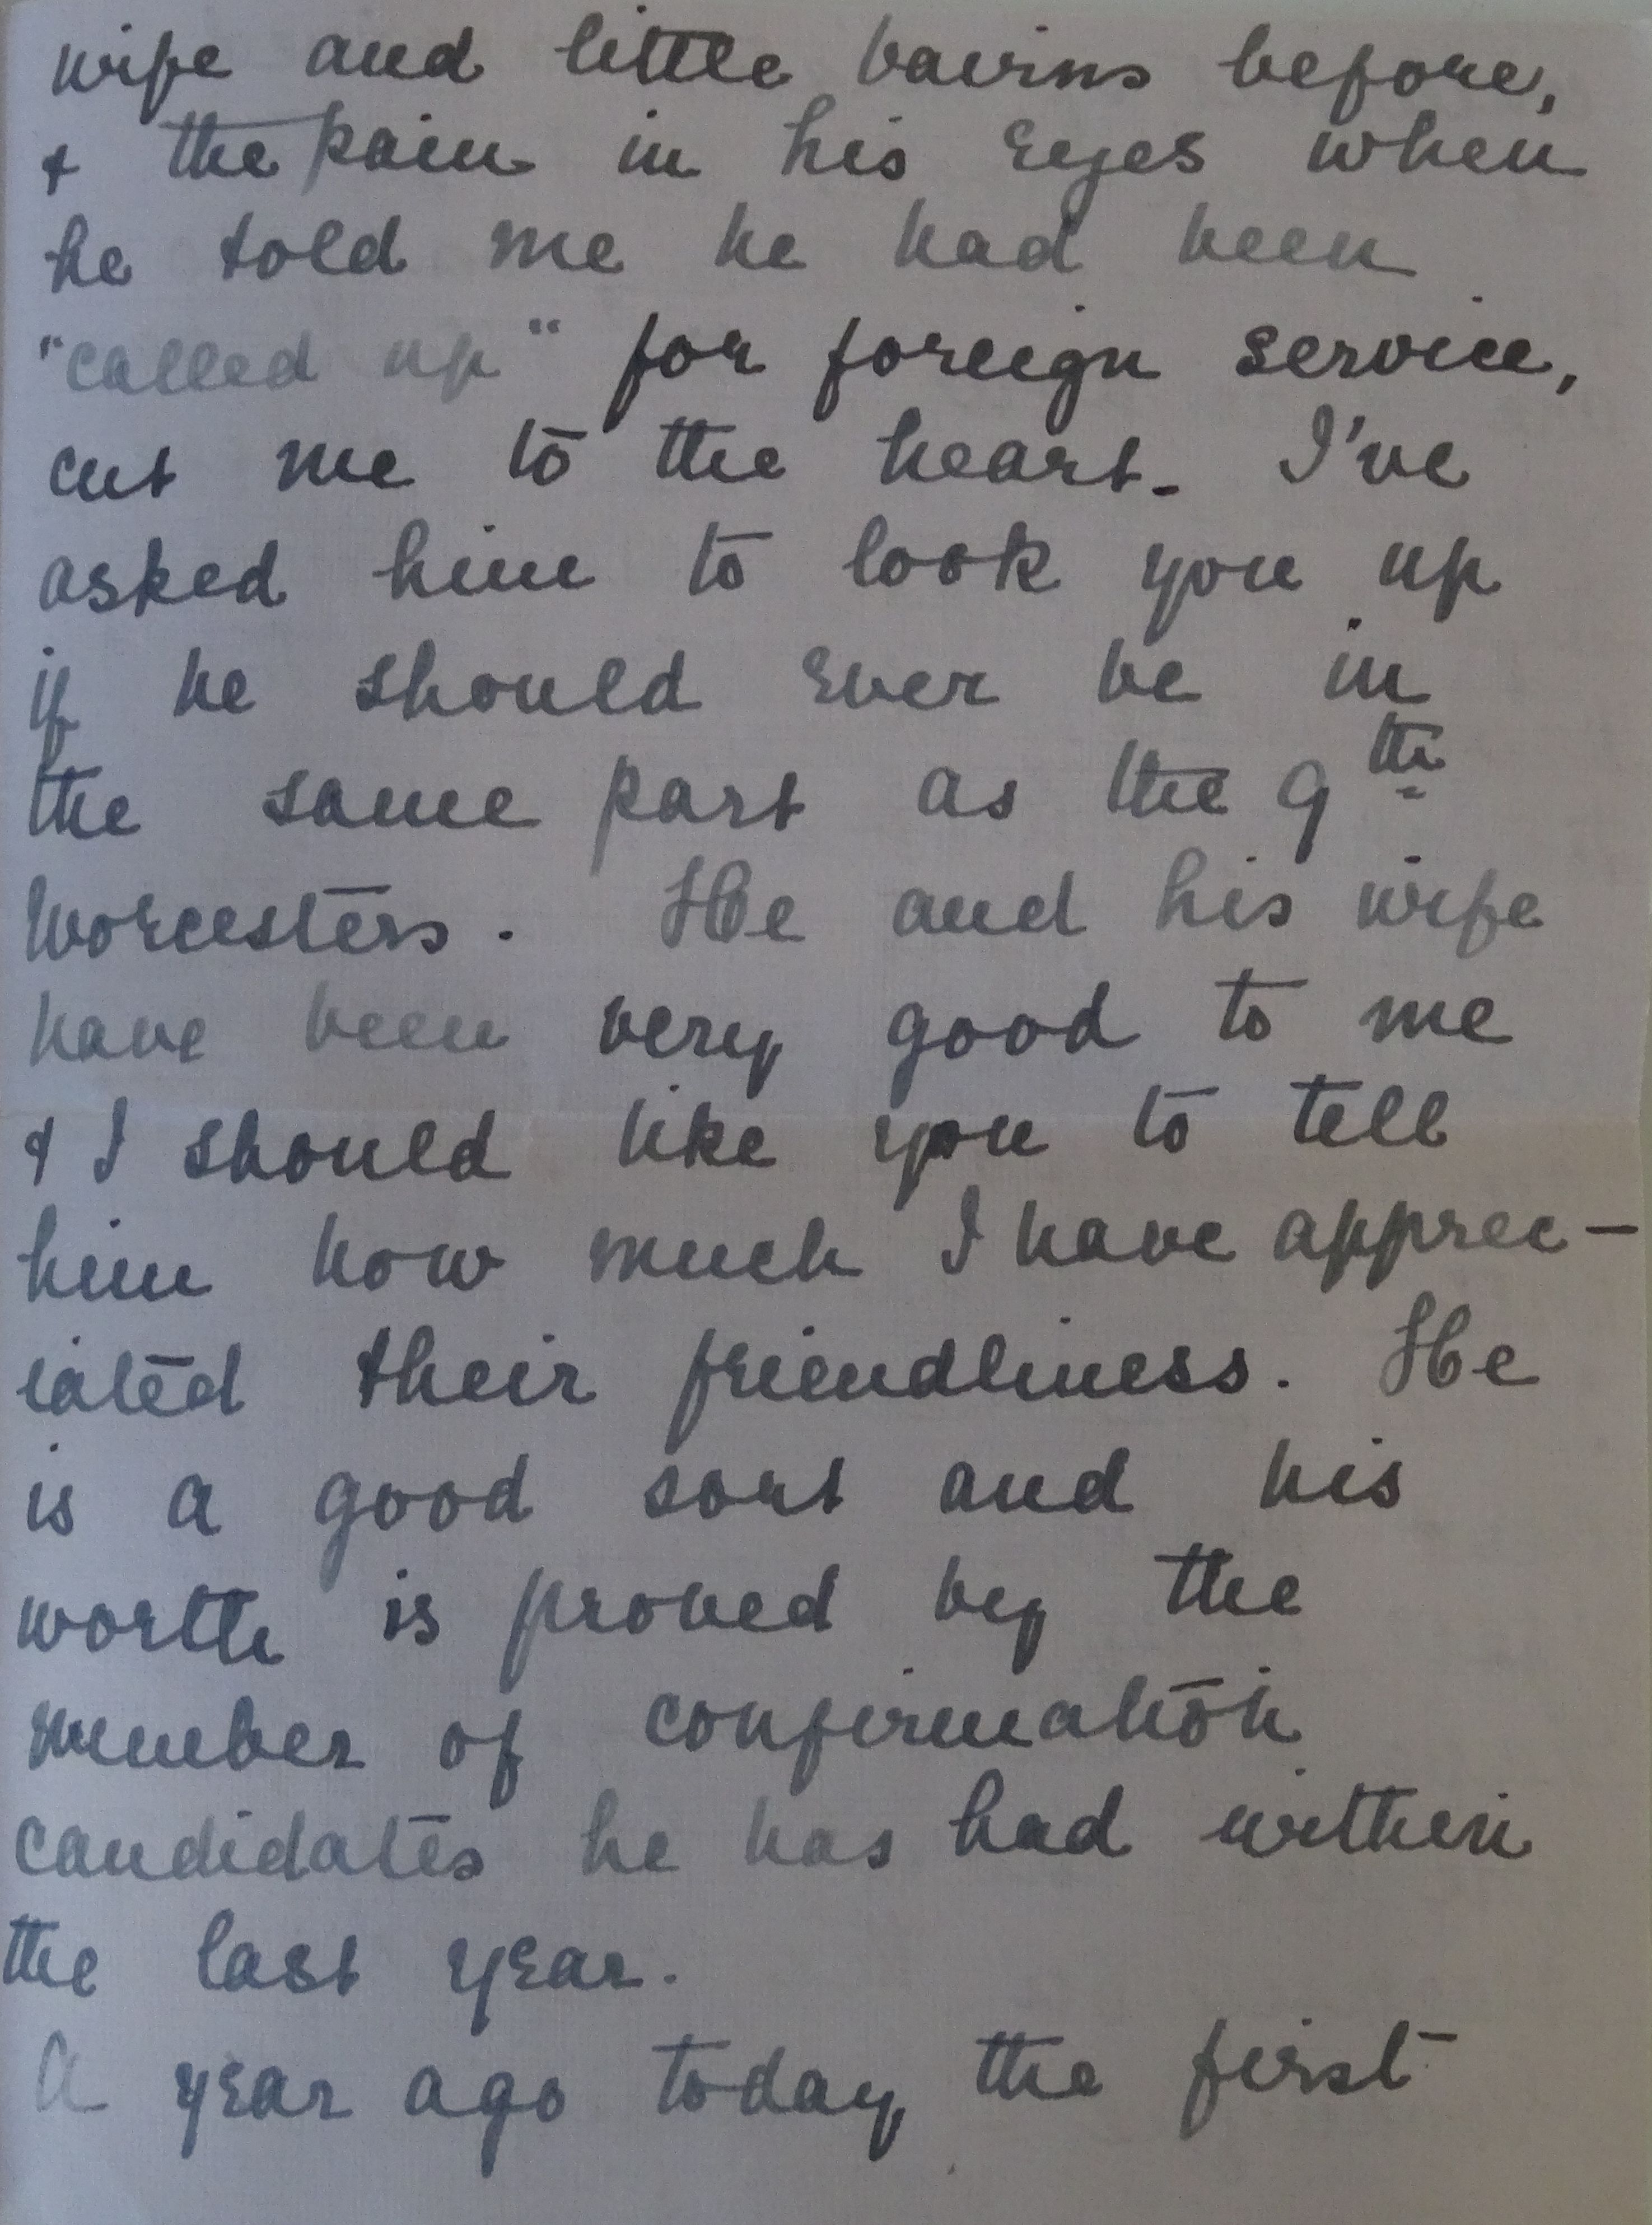 wife and little bairns before,
& the pain in his eyes when
he told me he had been
"called up" for foreign service,
cut me to the heart. I've
asked him to look you up
if he should ever be in
the same part as the 9th
Worcesters. He and his wife
have been very good to me
& I should like you to tell
him how much I have apprec-
iated their friendliness. He
is a good sort and his
worth is proved by the
number of confirmation
candidates he has had within
the last year.
A year ago today the first